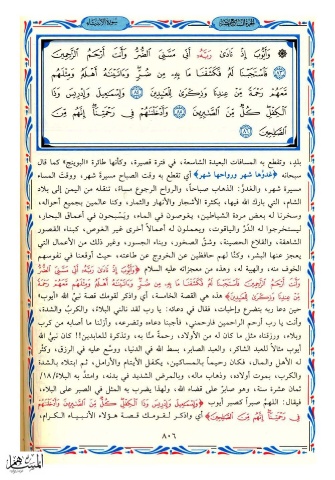 سورة الأنبياء
الجزء السابع عشر
۞ وَأَيُّوبَ إِذْ نَادَى رَبَّهُ أَنِّي مَسَّنِيَ الضُّرُّ وَأَنْتَ أَرْحَمُ الرَّاحِمِينَ
﴿٨٣﴾ فَاسْتَجَبْنَا لَهُ فَكَشَفْنَا مَا بِهِ مِنْ ضُرٍّ وَآتَيْنَاهُ أَهْلَهُ وَمِثْلَهُمْ
مَعَهُمْ رَحْمَةً مِنْ عِنْدِنَا وَذِكْرَى لِلْعَابِدِينَ ﴿٨٤﴾ وَإِسْمَاعِيلَ وَإِدْرِيسَ وَذَا
الْكِفْلِ كُلٌّ مِنَ الصَّابِرِينَ ﴿٨٥﴾ وَأَدْخَلْنَاهُمْ فِي رَحْمَتِنَا إِنَّهُمْ مِنَ
الصَّالِحِينَ ﴿٨٦﴾
بلدٍ، وتقطع به المسافات البعيدة الشاسعة، في فترة قصيرة، وكأنها طائرة «البوينج» كما قال
سبحانه ﴿غدوُّها شهر ورواحها شهر﴾ أي تقطع به وقت الصباح مسيرة شهر، ووقت المساء
مسيرة شهر، والغدوُّ: الذهاب صباحاً، والرواح الرجوع مساءً، تنقله من اليمن إلى بلاد
الشام، التي بارك الله فيها، بكثرة الأشجار والأنهار والثمار، وكنا عالمين بجميع أحواله،
وسخرنا له بعض مردة الشياطين، يغوصون في الماء، ويَسْبحون في أعماق البحار،
ليستخرجوا له الدُّرَّ والياقوت، ويعملون له أعمالاً أخرى غير الغوص، كبناء القصور
الشاهقة، والقلاع الحصينة، وشقِّ الصخور، وبناء الجسور، وغير ذلك من الأعمال التي
يعجز عنها البشر، وكنَّا لهم حافظين عن الخروج عن طاعته، حيث أوقعنا في نفوسهم
الخوف منه، والهيبة له، وهذه من معجزاته عليه السلام ﴿وَأَيُّوبَ إِذْ نَادَى رَبَّهُ أَنِّي مَسَّنِيَ الضُّرُّ
وَأَنْتَ أَرْحَمُ الرَّاحِمِينَ فَاسْتَجَبْنَا لَهُ فَكَشَفْنَا مَا بِهِ مِنْ ضُرٍّ وَآتَيْنَاهُ أَهْلَهُ وَمِثْلَهُمْ مَعَهُمْ رَحْمَةً
مِنْ عِنْدِنَا وَذِكْرَى لِلْعَابِدِينَ﴾ هذه هي القصة الخامسة، أي واذكر لقومك قصة نبيِّ الله «أيوب»
حين دعا ربه بتضرع وإخبات، فقال في دعائه: يا رب لقد نالني البلاءُ، والكربُ والشدة،
وأنت يا رب أرحم الراحمين فارحمني، فأجبنا دعاءه وتضرعه، وأزلنا ما أصابه من كرب
وبلاء، ورزقناه مثل ما كان له من الأولاد، رحمةً منَّا به، وتذكرة للعابدين!! كان نبيُّ الله
أيوب مثالاً للعبد الشاكر، والعبد الصابر، بسط الله في الدنيا، ووسَّع عليه في الرزق، وكثَّر
له الأهل والمال، فكان رحيماً بالمساكين، يكفل الأيتام والأرامل، ثم ابتلاه بالشدة
والكرب، بموت أولاده، وذهاب ماله، وبالمرض الشديد في بدنه، وامتدَّ به البلاءُ /١٨/
ثمان عشرة سنة، وهو صابرٌ على قضاء الله، ولهذا يضرب به المثل في الصبر على البلاء،
فيقال: اللهمَّ صبراً كصبر أيوب ﴿وَإِسْمَاعِيلَ وَإِدْرِيسَ وَذَا الْكِفْلِ كُلٌّ مِنَ الصَّابِرِينَ وَأَدْخَلْنَاهُمْ
فِي رَحْمَتِنَا إِنَّهُمْ مِنَ الصَّالِحِينَ﴾ أي واذكر لقومك قصة هؤلاء الأنبياء الكرام،
٨٠٦